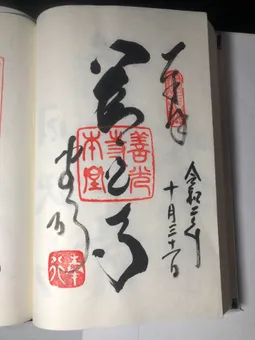 奉拝
令和二年
十月三十一日
善光寺
善光
寺
本堂